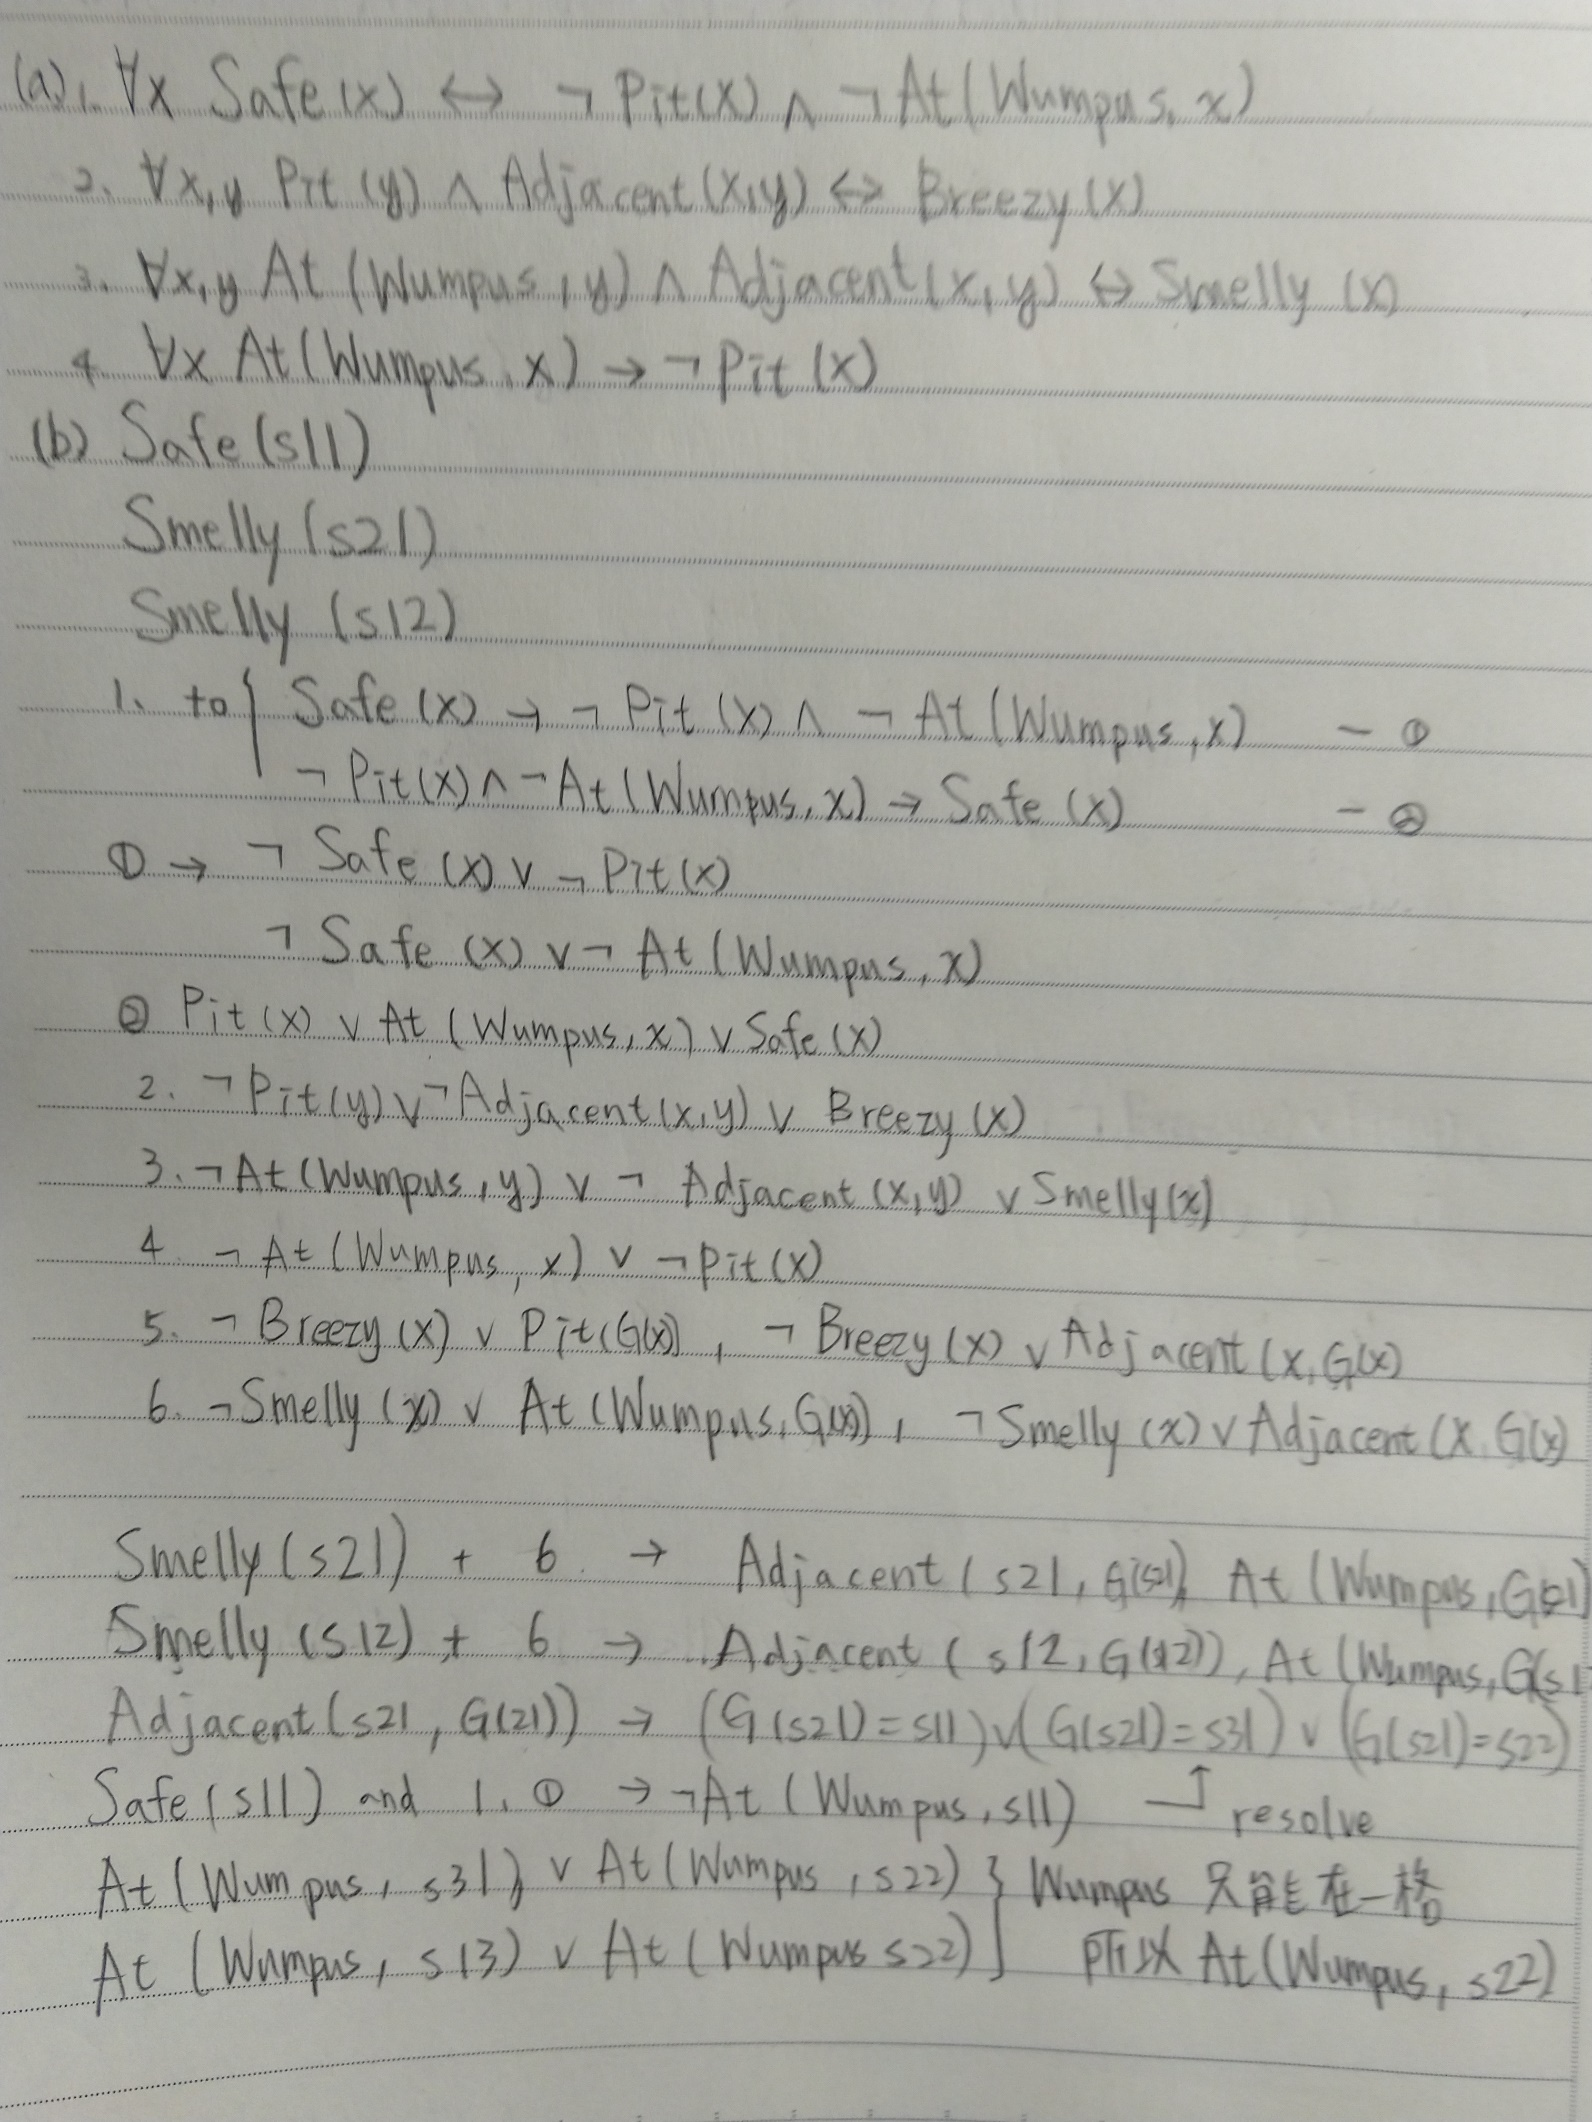 (a) 1. ∀x Safe(x) ↔ ¬Pit(x) ∧ ¬At(Wumpus, x)
2. ∀x,y Pit(y) ∧ Adjacent(x,y) ↔ Breezy(x)
3. ∀x,y At(Wumpus, y) ∧ Adjacent(x,y) ↔ Smelly(x)
4. ∀x At(Wumpus, x) → ¬Pit(x)
(b) Safe(s11)
Smelly(s21)
Smelly(s12)
1. to { Safe(x) → ¬Pit(x) ∧ ¬At(Wumpus, x) — ①
¬Pit(x) ∧ ¬At(Wumpus, x) → Safe(x) — ②
① → ¬Safe(x) ∨ ¬Pit(x)
¬Safe(x) ∨ ¬At(Wumpus, x)
② Pit(x) ∨ At(Wumpus, x) ∨ Safe(x)
2. ¬Pit(y) ∨ ¬Adjacent(x,y) ∨ Breezy(x)
3. ¬At(Wumpus, y) ∨ ¬Adjacent(x,y) ∨ Smelly(x)
4 ¬At(Wumpus, x) ∨ ¬Pit(x)
5. ¬Breezy(x) ∨ Pit(G(x)), ¬Breezy(x) ∨ Adjacent(x, G(x)
6. ¬Smelly(x) ∨ At(Wumpus, G(x)), ¬Smelly(x) ∨ Adjacent(x, G(x)
Smelly(s21) + 6 → Adjacent(s21, G(s21), At(Wumpus,
Smelly(s12) + 6 → Adjacent(s12, G(s12)), At(Wumpus, G(s1
Adjacent(s21, G(21)) → (G(s21)=s11) ∨ (G(s21)=s31) ∨ (G(s21)=s22)
Safe(s11) and 1. ① → ¬At(Wumpus, s11) ↑ resolve
At(Wumpus, s31) ∨ At(Wumpus, s22) } Wumpus 只能在一格
At(Wumpus, s13) ∨ At(Wumpus s22) 所以 At(Wumpus, s22)